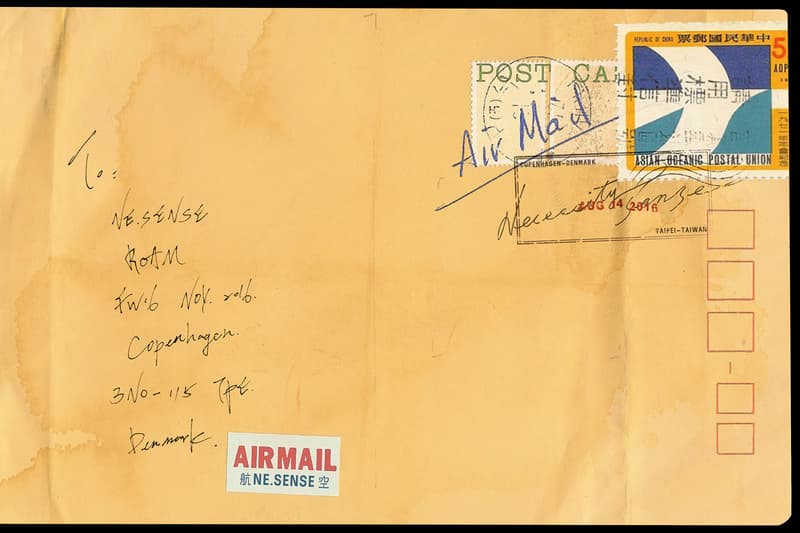 REPUBLIC OF CHINA 票郵國民華中
5
AOP
POST CA
ASIAN-OCEANIC POSTAL UNION
Air Mail
COPENHAGEN-DENMARK
Necessity Sense
AUG 04 2016
TAIPEI-TAIWAN
To:
NE.SENSE
ROAM
FW16 NOV. 2016.
Copenhagen.
3NO-115 TPE.
Denmark.
AIRMAIL
航 NE.SENSE 空